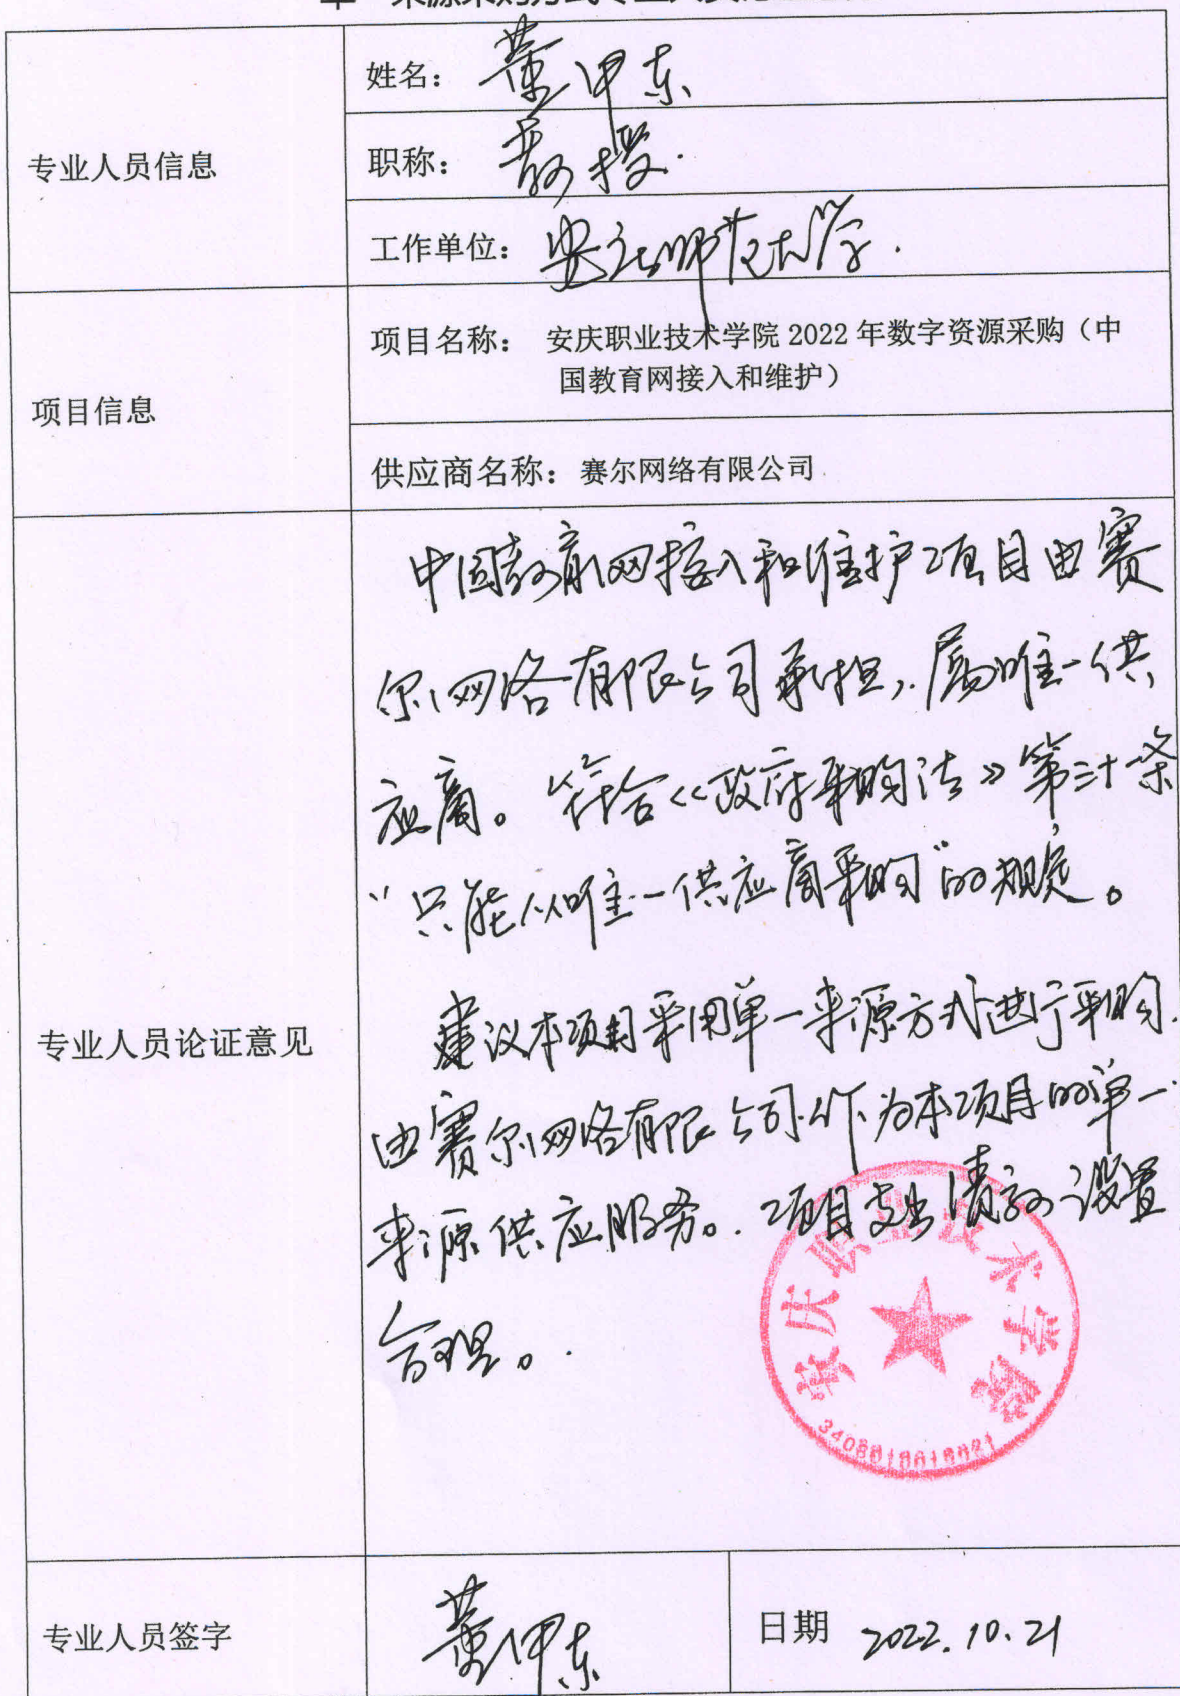 姓名：董甲东
专业人员信息
职称：教授.
工作单位：安庆师范大学.
项目信息
项目名称：安庆职业技术学院 2022 年数字资源采购（中
国教育网接入和维护）
供应商名称：赛尔网络有限公司
专业人员论证意见
中国教育网接入和维护项目由赛
尔网络有限公司承担,属唯一供
应商。符合《政府采购法》第三十一条
"只能从唯一供应商采购"的规定。
建议本项目采用单一来源方式进行采购.
由赛尔网络有限公司作为本项目的单一
来源供应服务。项目支出清款设置
合理。
安庆职业技术学院
专业人员签字
董甲东
日期 2022.10.21